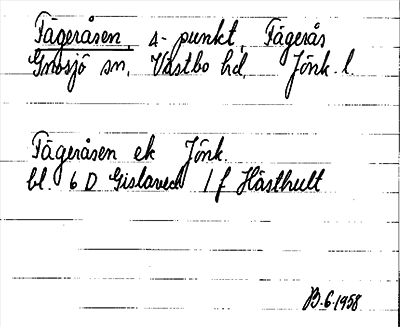 Fägeråsen, s-punkt, Fägerås
Gnosjö sn, Västbo hd, Jönk. l.
Fägeråsen ek Jönk.
bl. 6 D Gislaved 1 f Hästhult
B. 6. 1958